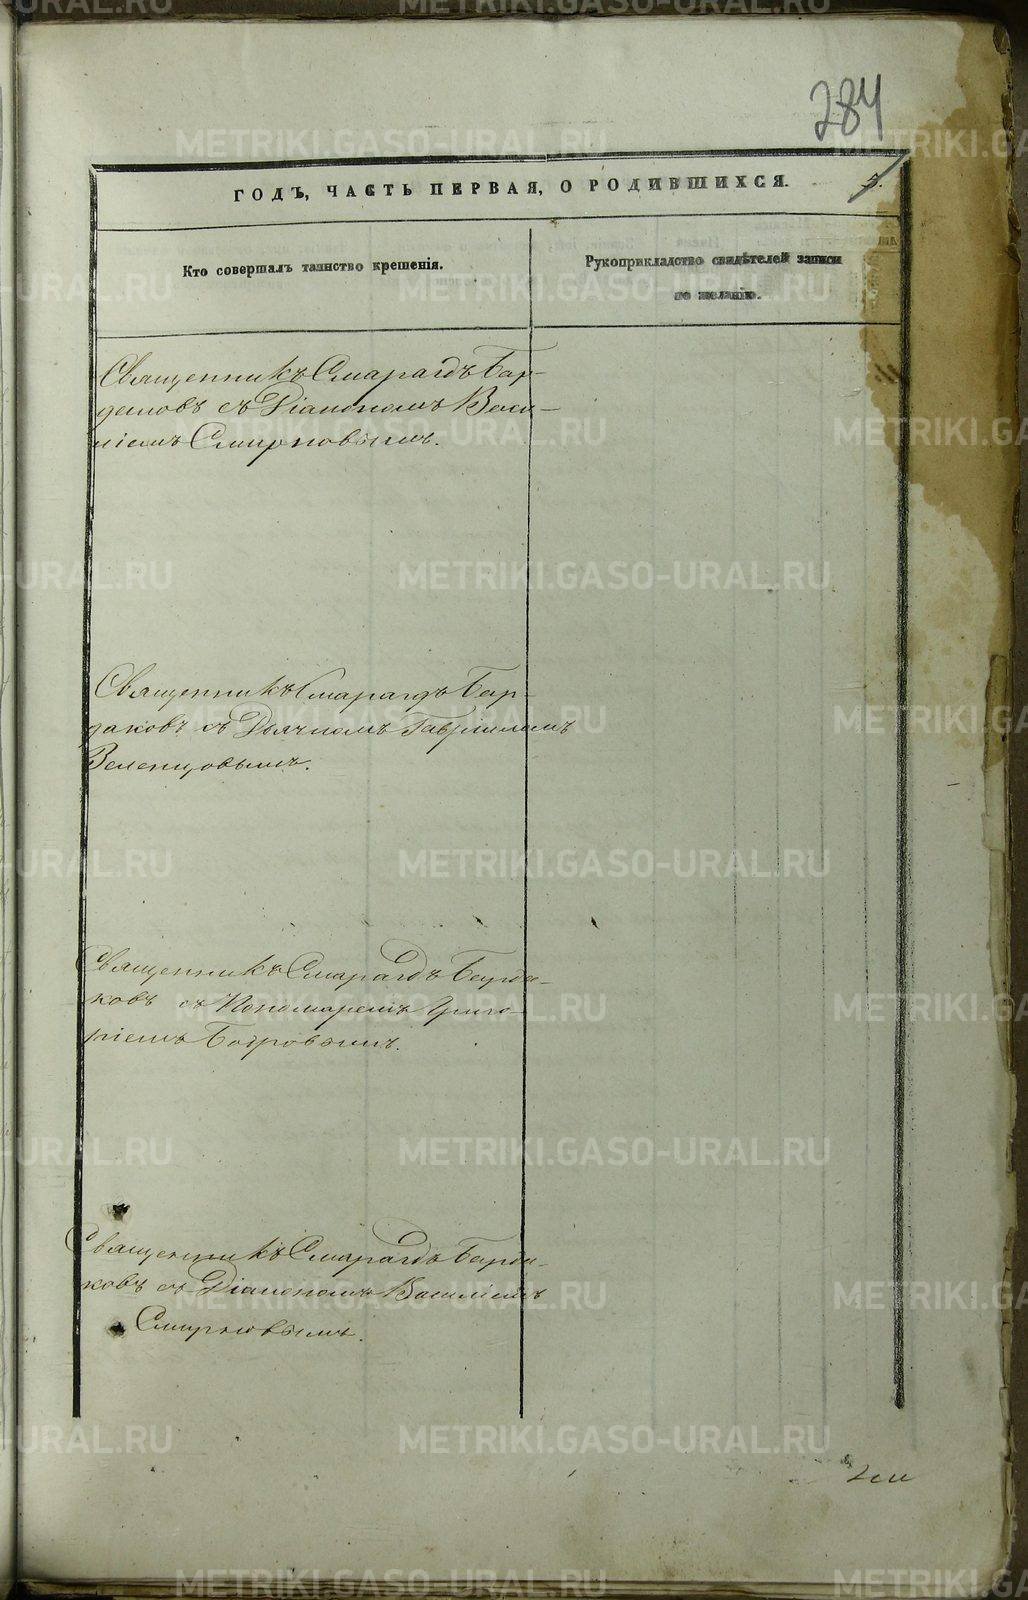 284
ГОДЪ, ЧАСТЬ ПЕРВАЯ, О РОДИВШИХСЯ. 5.
Кто совершалъ таинство крещенія.
Рукоприкладство свидѣтелей записи
по желанію.
Священникъ Смарагдъ Бар-
даковъ съ Діакономъ Васи-
ліемъ Смирновымъ.
Священникъ Смарагдъ Бар-
даковъ съ Дьячкомъ Гавріиломъ
Зеленцовымъ.
Священникъ Смарагдъ Барда-
ковъ съ Пономаремъ Григо-
ріемъ Бобровымъ.
Священникъ Смарагдъ Барда-
ковъ съ Діакономъ Василіемъ
Смирновымъ.
METRIKI.GASO-URAL.RU